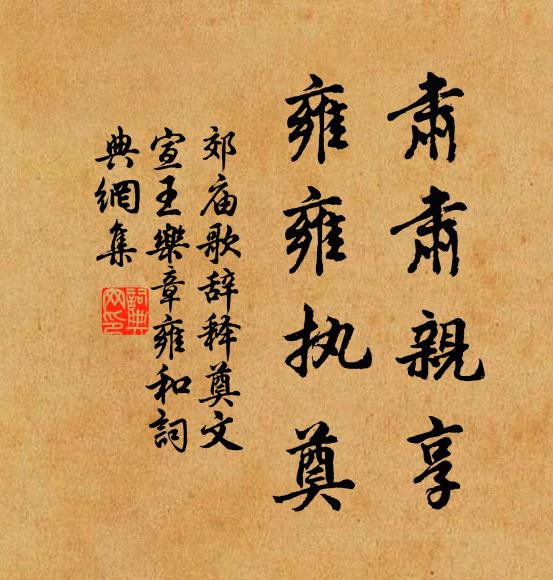 肃肃親享
雍雍执奠
郊庙歌辞释奠文
宣王樂章雍和詞
典網集
詞典
网印